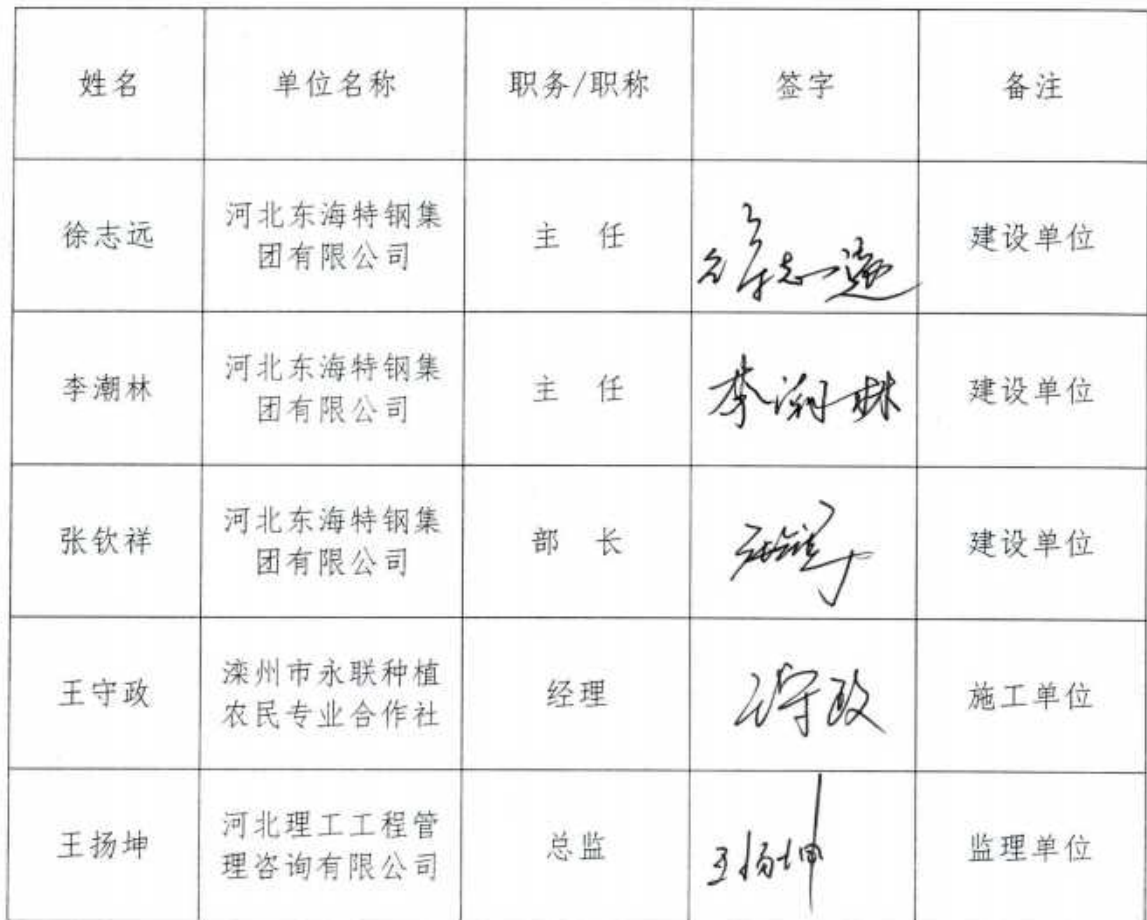 姓名 单位名称 职务/职称 签字 备注
徐志远 河北东海特钢集团有限公司 主 任 徐志远 建设单位
李潮林 河北东海特钢集团有限公司 主 任 李潮林 建设单位
张钦祥 河北东海特钢集团有限公司 部 长 建设单位
王守政 滦州市永联种植农民专业合作社 经理 王守政 施工单位
王扬坤 河北理工工程管理咨询有限公司 总监 王扬坤 监理单位